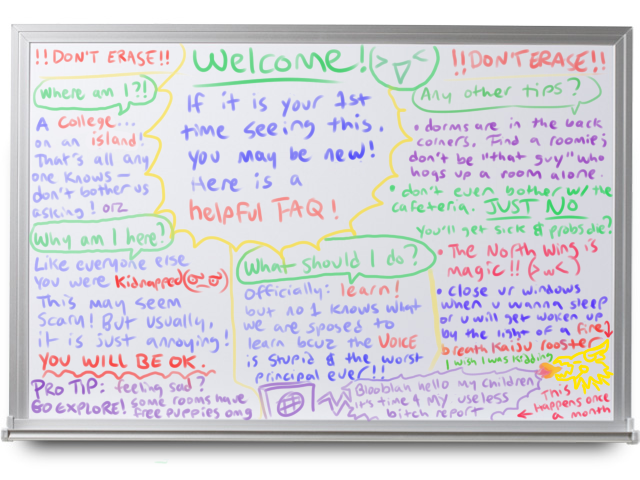 !!DON'T ERASE!!
Welcome!
!!DON'T ERASE!!
Where am I?!
A College...
on an island!
That's all any
one knows —
don't bother us
asking! orz
Why am I here?
Like everyone else
you were Kidnapped
This may seem
scary! But usually,
it is just annoying!
YOU WILL BE OK.
PRO TIP: feeling sad?
GO EXPLORE! some rooms have
free puppies omg
If it is your 1st
time seeing this.
you may be new!
Here is a
helpful FAQ!
What should I do?
Officially: learn!
but no 1 knows what
we are sposed to
learn bcuz the VOICE
is stupid & the worst
principal ever!!
Blooblah hello my children
it's time 4 my useless
bitch report
Any other tips?
• dorms are in the back
corners. Find a roomie;
don't be "that guy" who
hogs up a room alone.
• don't even bother w/the
cafeteria. JUST NO
you'll get sick & probs die?
• The North Wing is
magic!! (>ω<)
• Close ur windows
when u wanna sleep
or u will get woken up
by the light of a fire
breath Kaiju rooster
I wish I was kidding
This
← happens once
a month